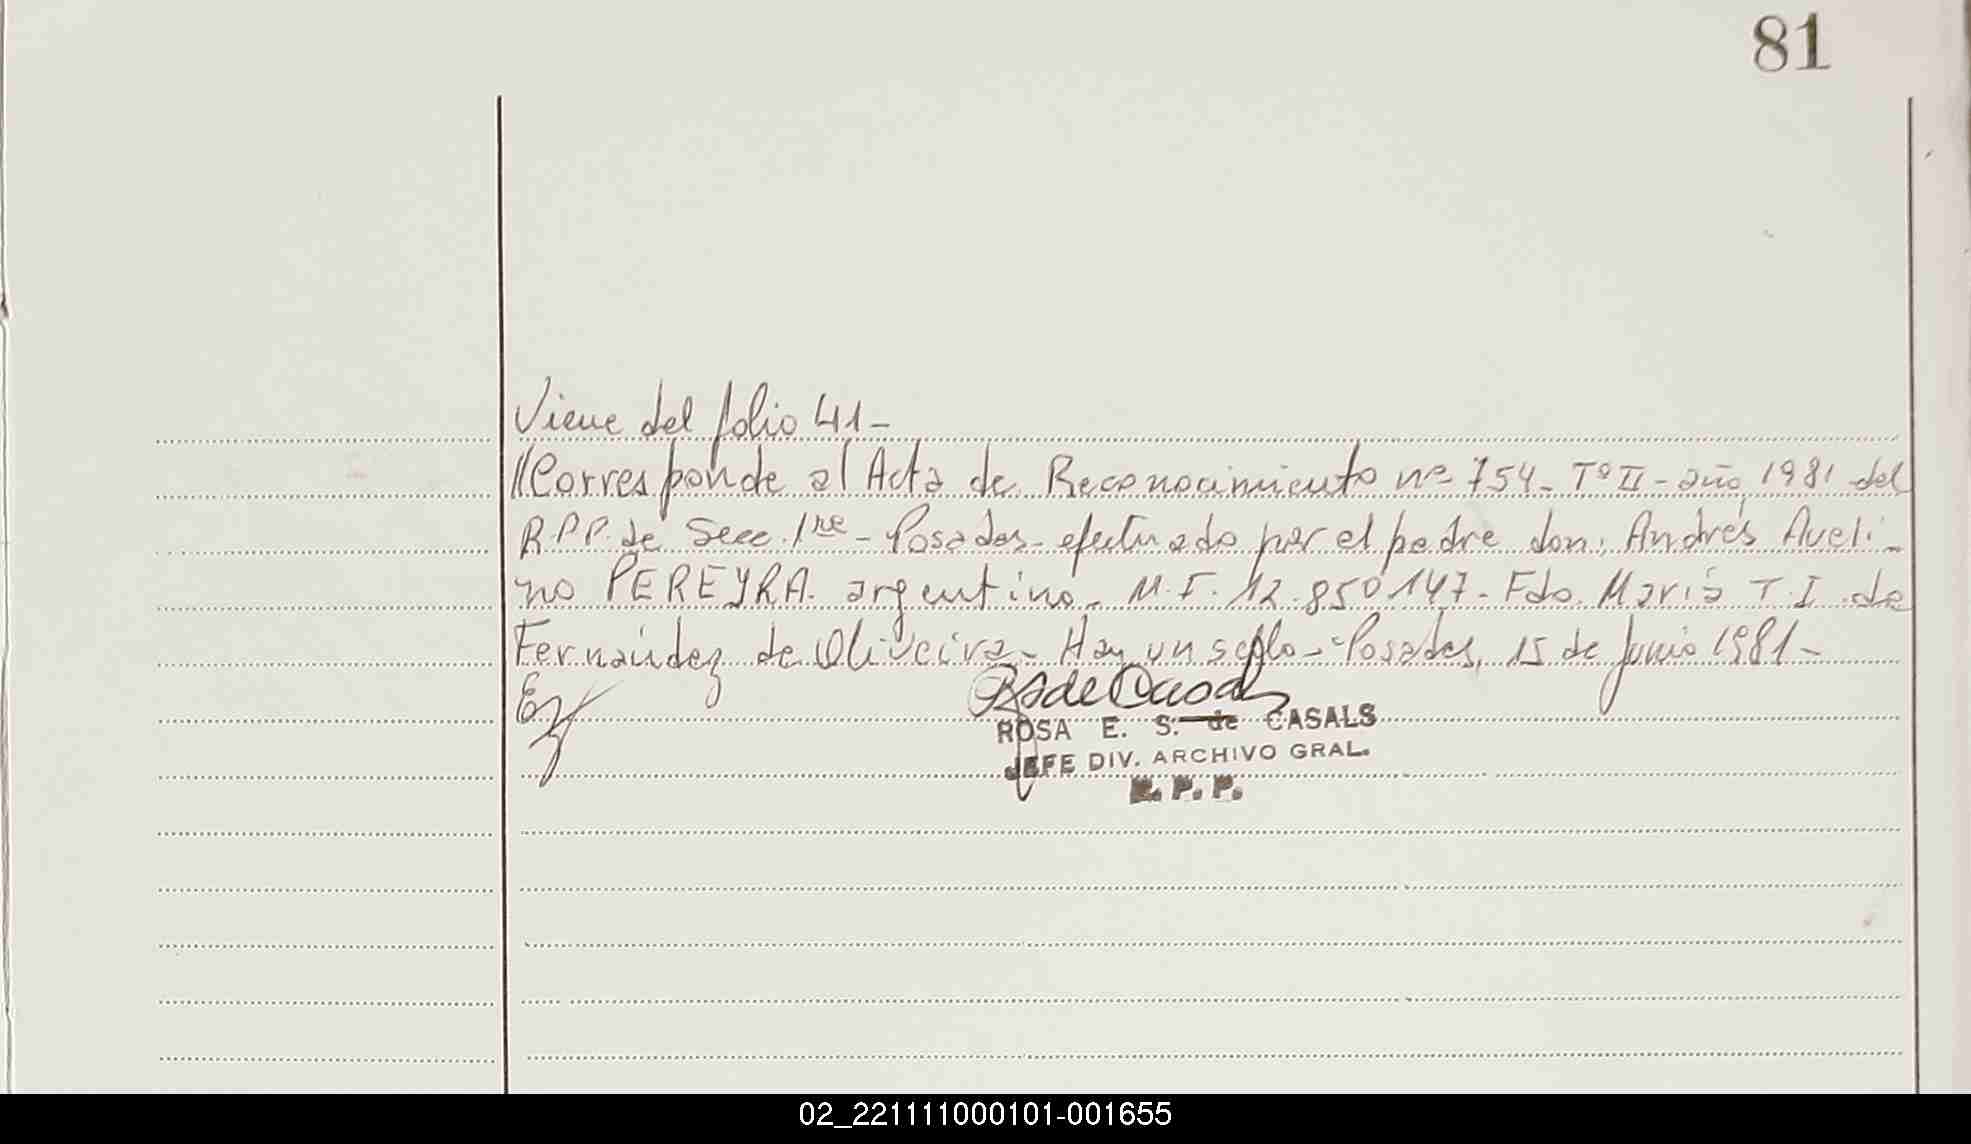 81
Viene del folio 41-
//Corresponde al Acta de Reconocimiento nº 754- Tº II - año 1981 del
R.P.P. de Secc. 1ra - Posadas - efectuado por el padre don: Andrés Aveli-
no PEREYRA. argentino - M.I. 12.850.147 - Fdo. María T. I. de
Fernández de Oliveira - Hay un sello - Posadas, 15 de Junio 1981 -
ROSA E. S. de CASALS
JEFE DIV. ARCHIVO GRAL.
R. P. P.
02_221111000101-001655